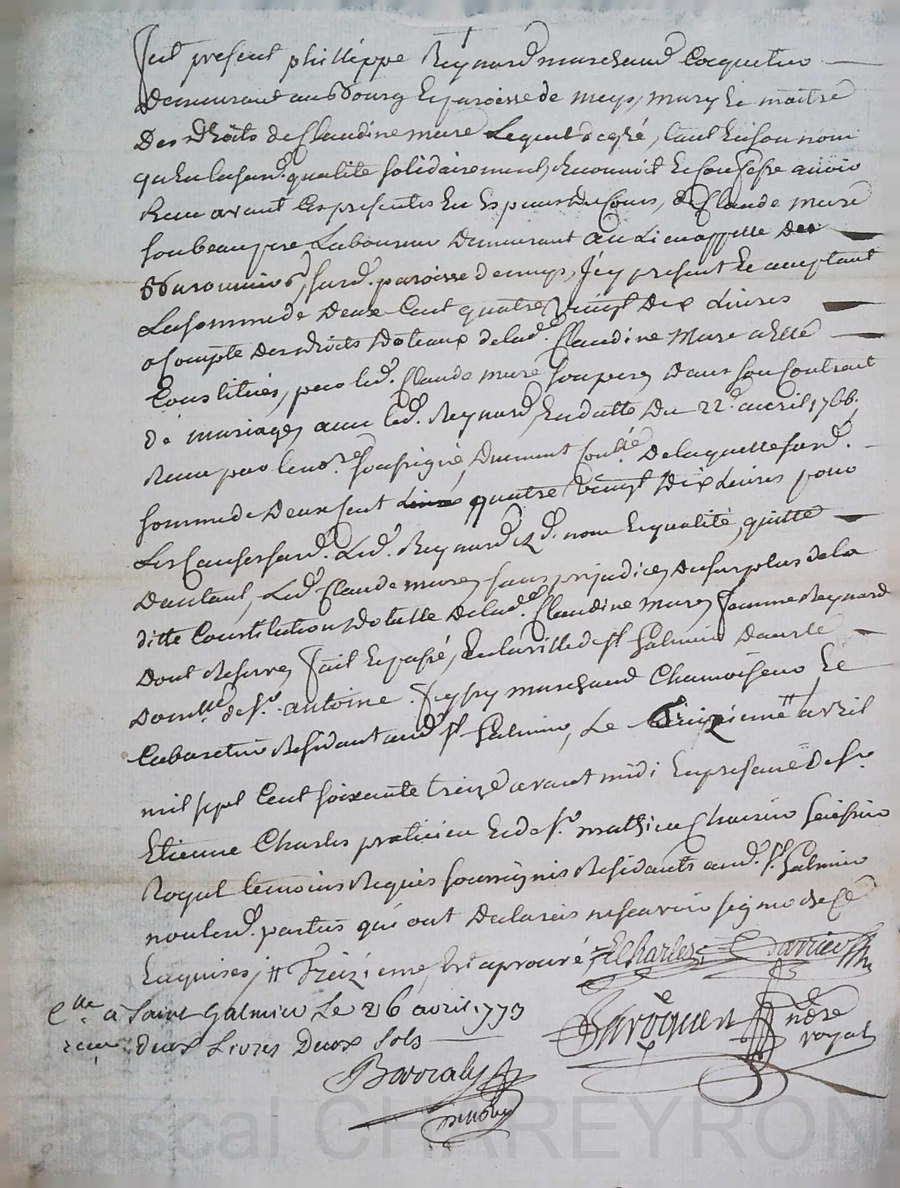 fut present phillippe Reynard marchand Cocquetier
Demeurant au Bourg et paroisse de meys, mary et maitre
Des droits de Claudine mure Lequel de gré, tant En son nom
qu'En lasusd. qualité solidairement, Reconnoit Et Confesse avoir
Receu avant Ces presentes En Especes du Cours, de Claude mure
son beaupere Laboureur Demeurant au Lieu appellé Des
susd. paroisse de meys, Icy present Et acceptant
La somme de Deux Cent quatre vingt Dix Livres
a Compte Des droits Dotaux de lad. Claudine Mure a Elle
Constitués, par led. Claude mure son pere, Dans son Contrat
de mariage, avec led. Reynard, En datte Du 22e. avril 1766,
Receu par le no.re soussigné, Duement Con.lé De laquelle susd.
somme de Deux Cent quatre vingt Dix Livres pour
Les Causes susd. Led. Reynard, Ezd. nom Et qualité, quitte
Dautant, Led. Claude mure, sans prejudice, Du surplus de la
ditte Constitution Dotalle De lad. Claudine Mure, femme Reynard
Dont Reserve, fait Et passé, En la ville de St. Galmier Dans le
Domlle. de Sr. antoine marchand Chamoiseur Et
Cabaretier Residant aud. St. Galmier, Le Treizieme # avril
mil sept Cent soixante treize avant midi En presence De Sr.
Etienne Charles praticien Et de Sr. mathieu huissier
Royal temoins Requis soussignés Residants aud. St. Galmier
non led. parties qui ont Declarées ne scavoir signer de Ce
Enquises, # Treizieme, Est aprouvé, E Charles
Clle. à Saint Galmier Le 26 avril 1773
reçu deux Livres Deux sols
nore royal
Barralz
Pascal CHAREYRON